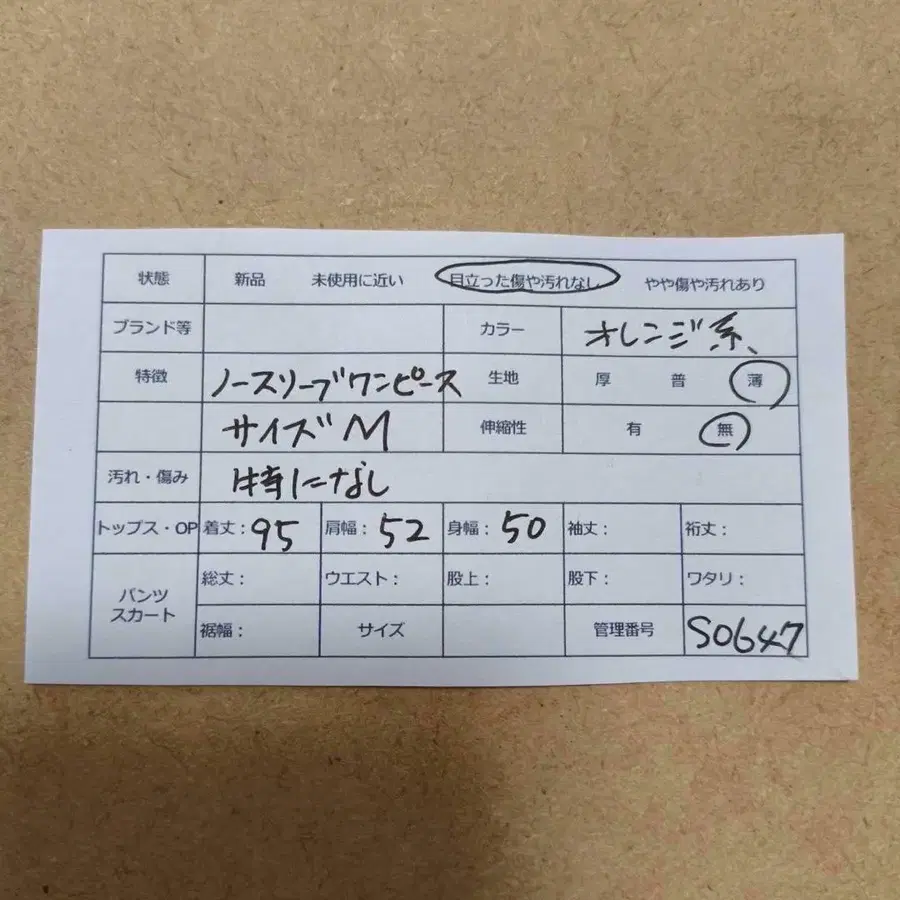 状態 新品 未使用に近い 目立った傷や汚れなし やや傷や汚れあり
ブランド等 カラー オレンジ系、
特徴 ノースリーブワンピース 生地 厚 普 薄
サイズM 伸縮性 有 無
汚れ・傷み 特になし
トップス・OP 着丈：95 肩幅：52 身幅：50 袖丈： 裄丈：
パンツ スカート 総丈： ウエスト： 股上： 股下： ワタリ：
裾幅： サイズ 管理番号 S0647